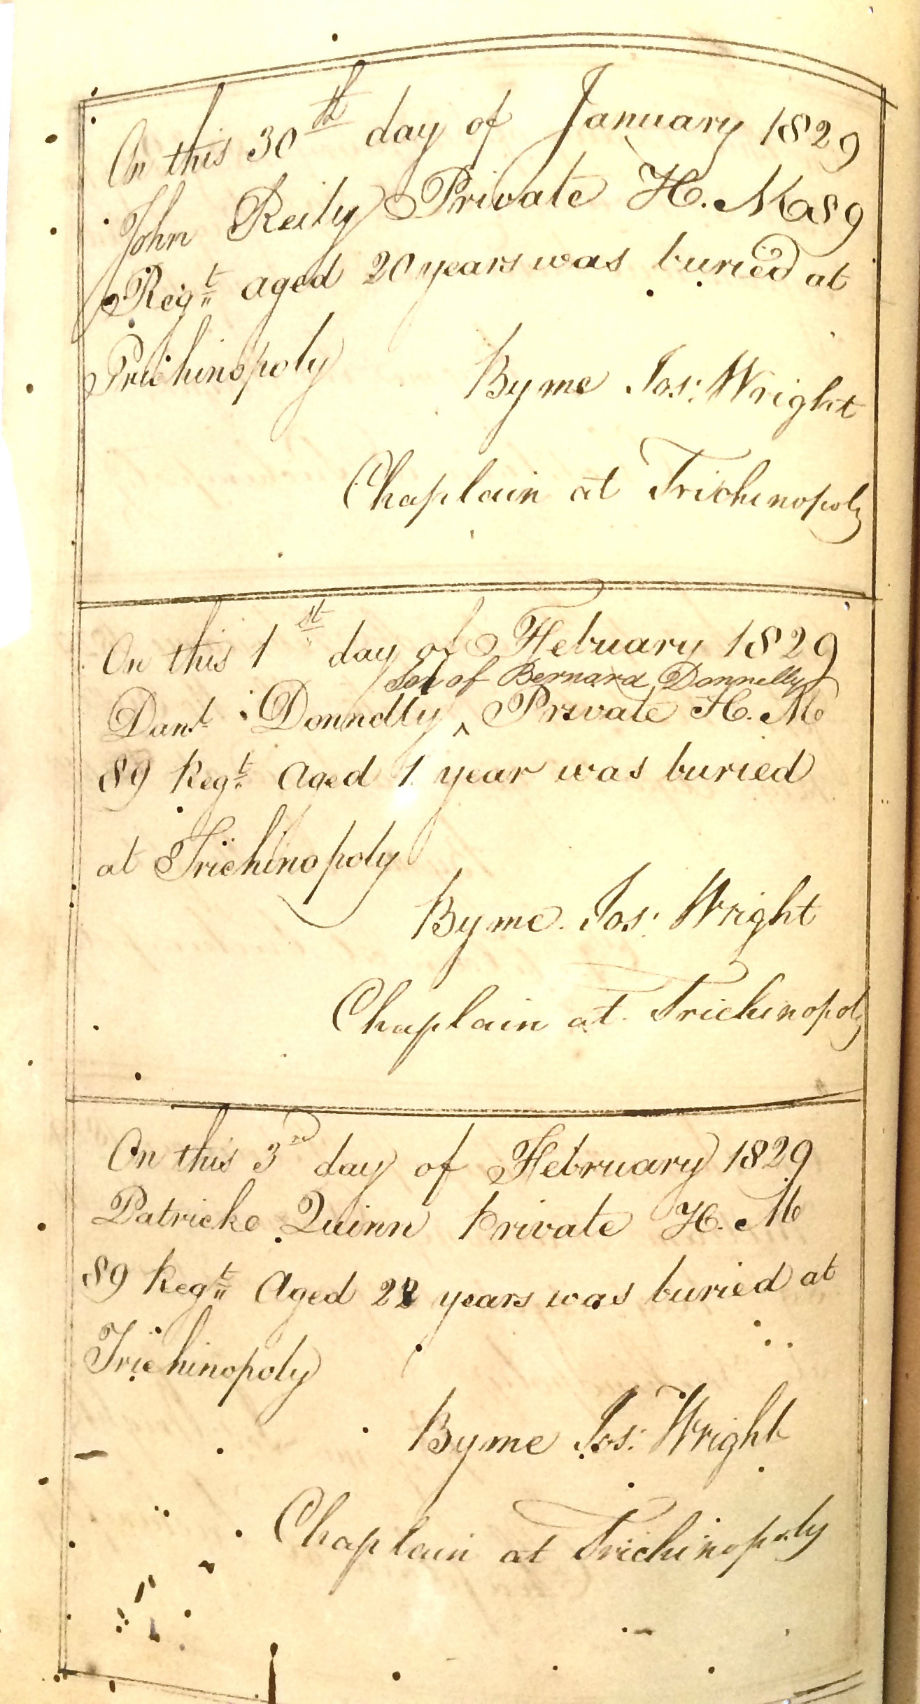 On this 30th day of January 1829
John Reily Private H. M 89
Regt aged 20 years was buried at
Trichinopoly
By me Jos: Wright
Chaplain at Trichinopoly
On this 1st day of February 1829
Son of Bernard Donnelly
Danl Donnolly ^ Private H. M
89 Regt Aged 1 year was buried
at Trichinopoly
By me. Jos: Wright
Chaplain at Trichinopoly
On this 3rd day of February 1829
Patricke Quinn Private H. M
89 Regt Aged 28 years was buried at
Trichinopoly
By me Jos: Wright
Chaplain at Trichinopoly